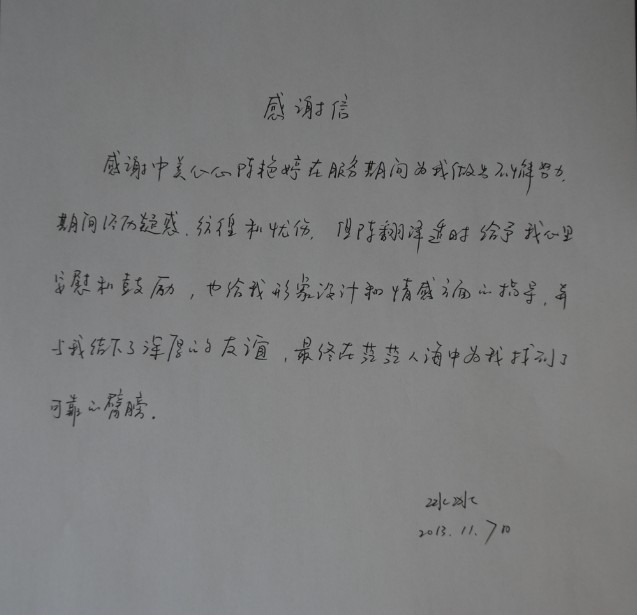 感谢信
感谢中美心心陈艳婷在服务期间为我做出不懈努力.
期间经历疑惑.彷徨和忧伤.但陈翻译适时给予我心里
安慰和鼓励,也给我形象设计和情感方面的指导,并
与我结下了深厚的友谊,最终在茫茫人海中为我找到了
可靠的臂膀.
冰冰
2013.11.7日